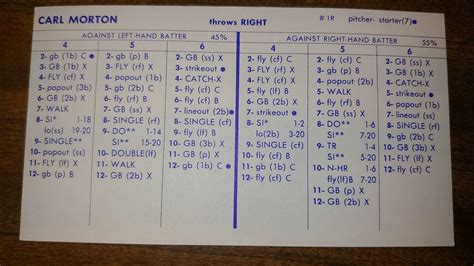 CARL MORTON
throws RIGHT
#1R pitcher- starter(7)●
AGAINST LEFT-HAND BATTER 45%
4
2- gb (1b) C ●
3- GB (1b) X
4- FLY (cf) X
5- popout (3b)
6- GB (2b) X
7- WALK
8- SI*
lo(ss) 19-20
9- SINGLE**
10- popout (ss)
11- FLY (lf) X
12- gb (2b) C
5
2- gb (p) B
3- FLY (rf) X
4- popout (1b)
5- fly (cf) C
6- fly (cf) B
7- GB (2b) X
8- SINGLE (rf)
9- DO** 1-14
SI** 15-20
10- DOUBLE(lf)
11- WALK
12- gb (p) B
6
2- GB (ss) X
3- strikeout ●
4- CATCH-X
5- strikeout ●
6- GB (ss) X
7- lineout (2b) ●
8- SINGLE (cf)
9- fly (lf) B
10- GB (3b) X
11- GB (p) X ●
12- gb (p) C
AGAINST RIGHT-HAND BATTER 55%
4
2- gb (ss) C
3- FLY (cf) X
4- FLY (lf) X
5- popout
6- GB (2b) X
7- strikeout ●
8- SI* 1-2
lo(2b) 3-20
9- SINGLE (cf)
10- fly (cf) B
11- FLY (rf) X
12- fly (cf) C
5
2- gb (p) B
3- fly (cf) B
4- popout (2b)
5- WALK
6- GB (ss) X
7- WALK
8- DO** 1-6
SI** 7-20
9- TR 1-4
SI** 5-20
10- N-HR
fly(lf) B 7-20
11- GB (p) X
12- GB (3b) X
6
2- GB (ss) X
3- GB
4- CATCH-X
5- strikeout ●
6- popout (2b)